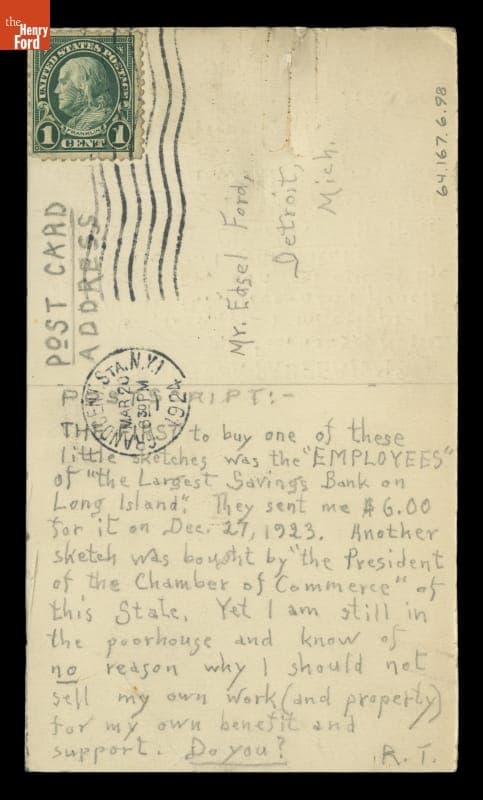 the
Henry
Ford
UNITED STATES POSTAGE
FRANKLIN
1 CENT 1
64.167.6.98
POST CARD
ADDRESS
Mr. Edsel Ford,
Detroit,
Mich.
STA. N.Y.
MAR 20
630 PM
1924
POSTSCRIPT:-
THE FIRST to buy one of these
little sketches was the "EMPLOYEES"
of "the Largest Savings Bank on
Long Island". They sent me $6.00
for it on Dec. 27, 1923. Another
sketch was bought by "the President
of the Chamber of Commerce" of
this State. Yet I am still in
the poorhouse and know of
no reason why I should not
sell my own work (and property)
for my own benefit and
support. Do you?
R. T.